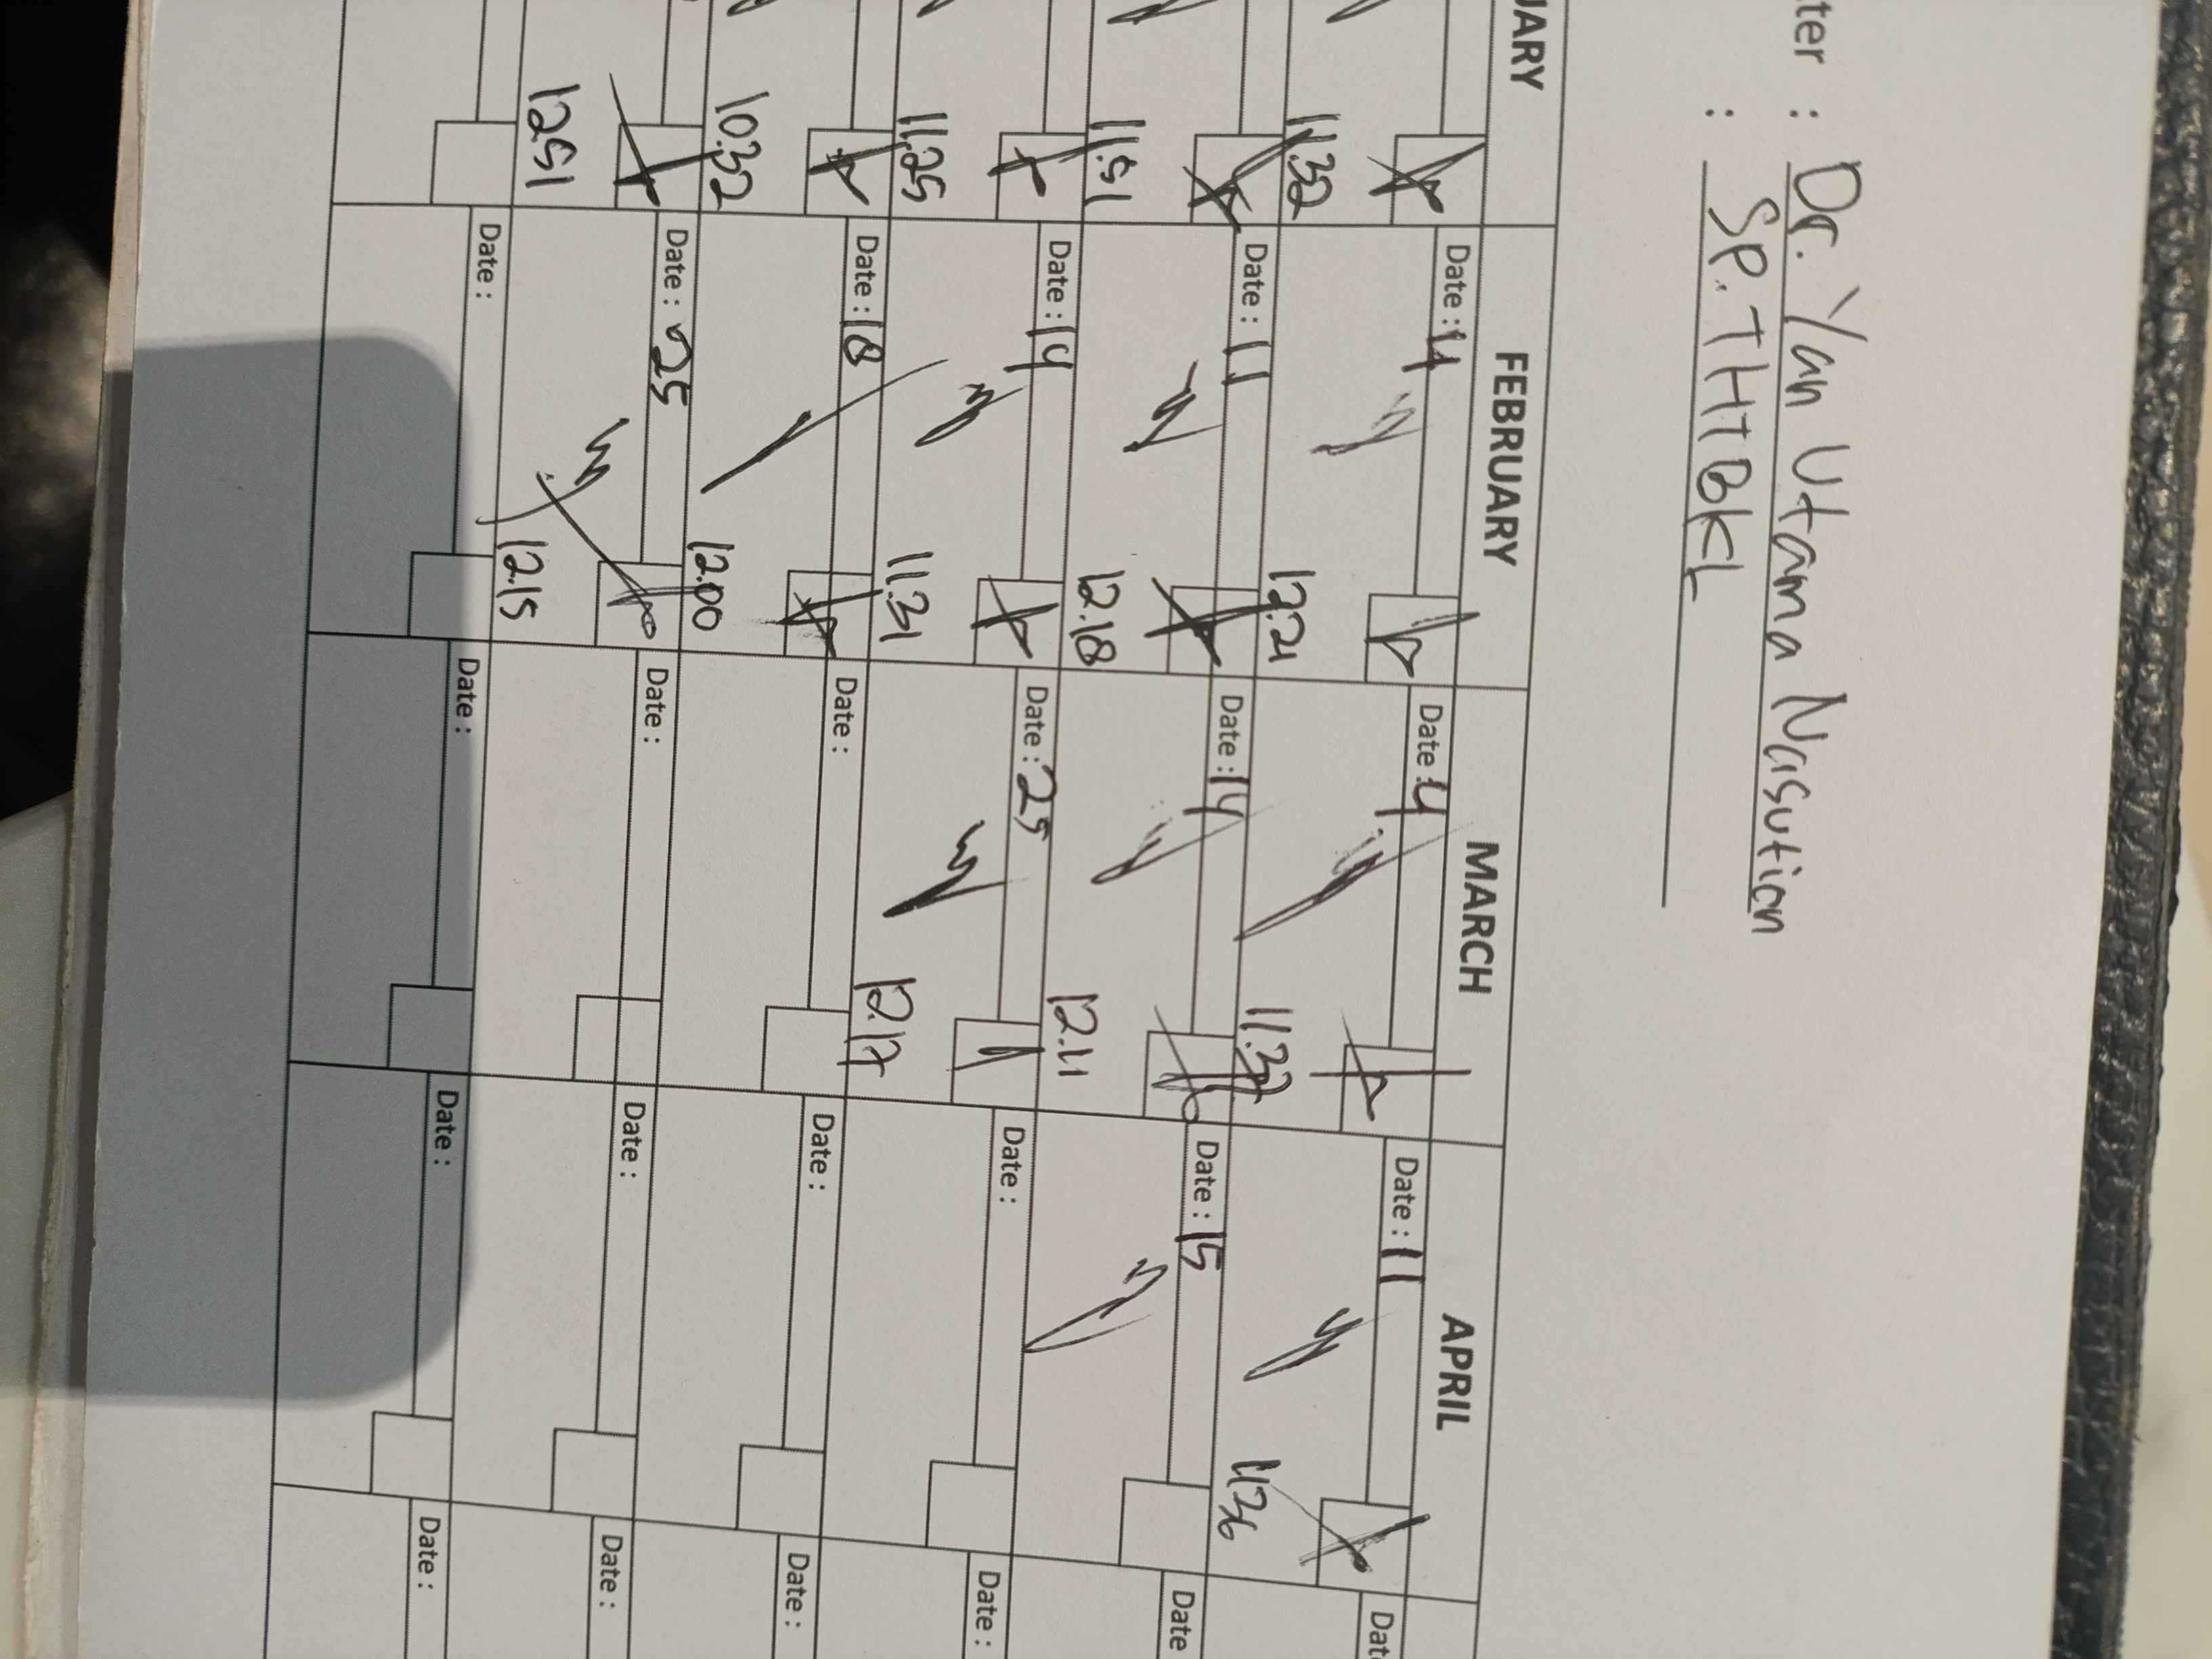 ter : Dr. Yan Utama Nasution
: Sp. THTBKL
UARY FEBRUARY MARCH APRIL
Date : 4 Date : 4 Date : 11 Dat
11.32 12.21 11.36
Date : 11 Date : 14 Date : 15 Date
11.51 12.18 12.11
Date : 14 Date : 25 Date : Date :
11.25 11.31 12.17
Date : 18 Date : Date : Date :
10.32 12.00
Date : 25 Date : Date : Date :
12.51 12.15
Date : Date : Date : Date :